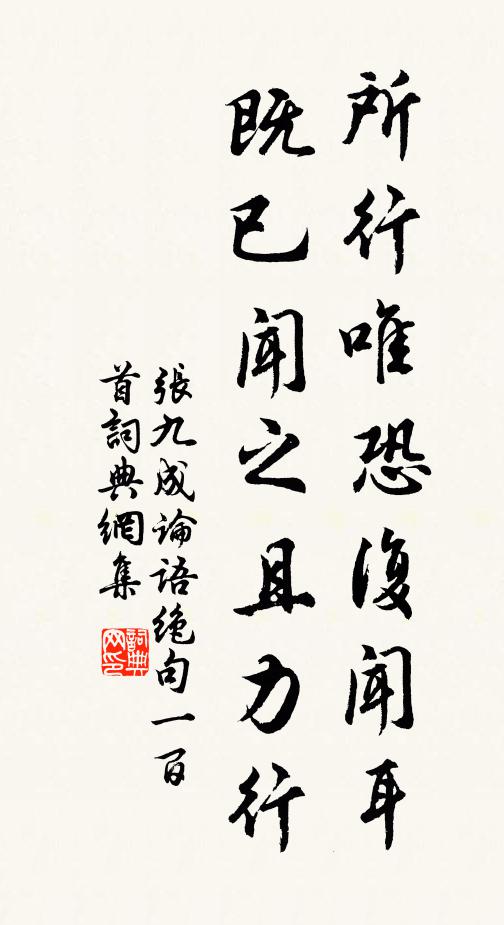 所行唯恐復聞耳
既已聞之且力行
張九成論語絕句一百
首詞典網集
詞典网印